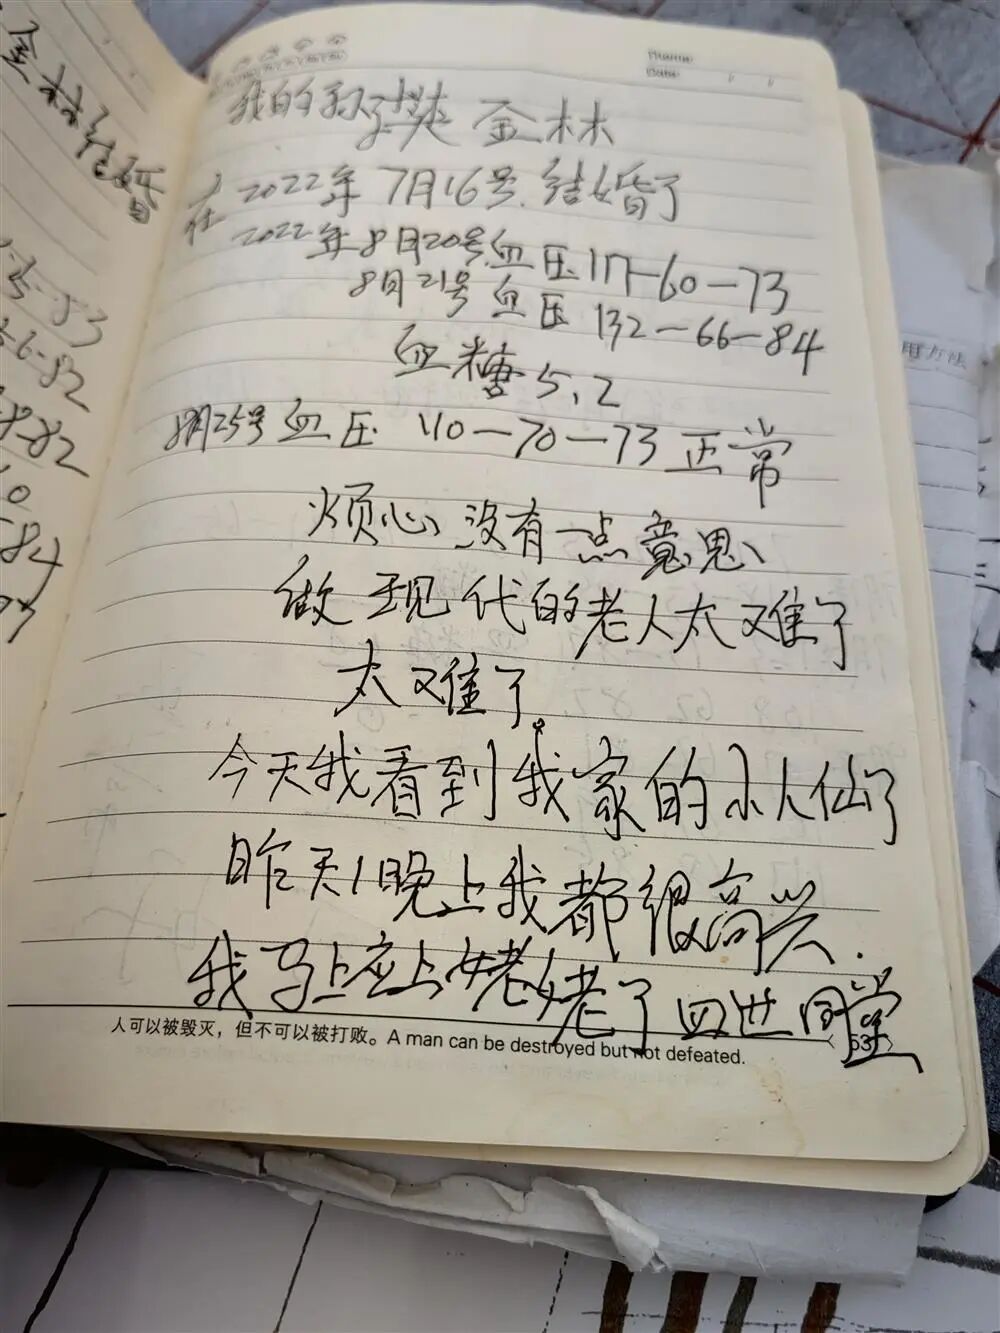 金林结婚
53
-82
-82
84
Theme
Date
我的孙樊金林
在2022年7月16号.结婚了
2022年8月20号.血压117-60-73
8月21号血压132-66-84
血糖5.2
8月25号血压110-70-73正常
烦心、没有一点意思、
做现代的老人太难了
太难了。
今天我看到我家的小人仙了
昨天1晚上我都很高兴.
我马上应上姥姥了四世同堂
人可以被毁灭，但不可以被打败。A man can be destroyed but not defeated.
用方法